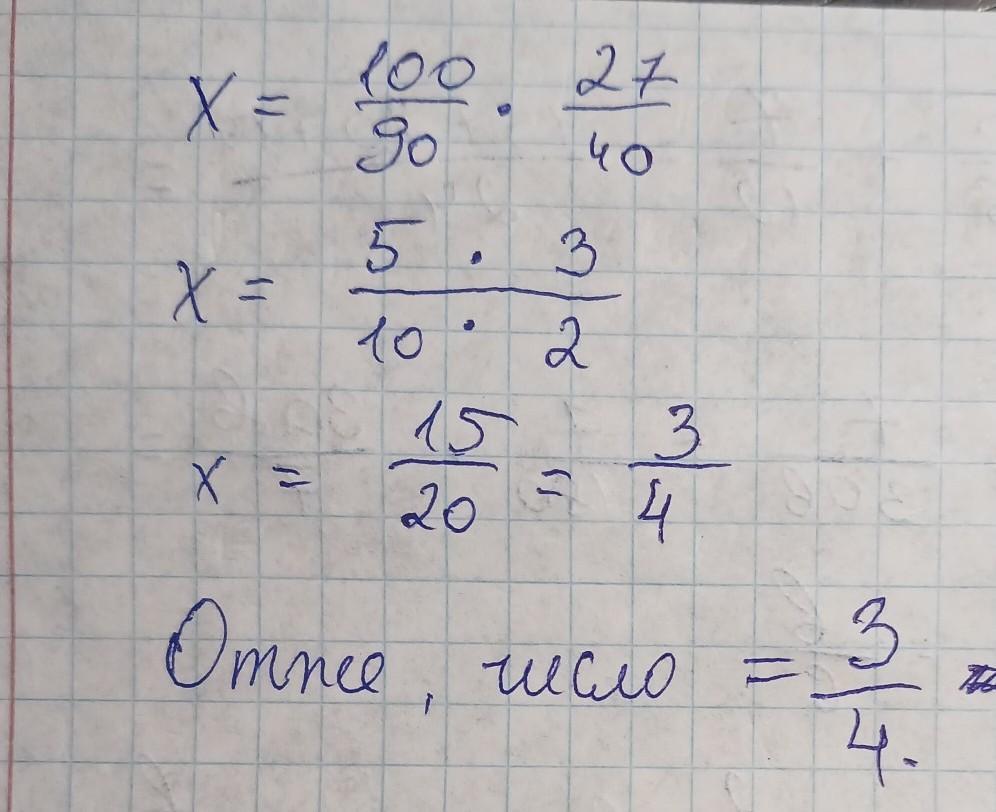 x = 100/90 · 27/40
x = 5 · 3 / 10 · 2
x = 15/20 = 3/4
Отже, число = 3/4.